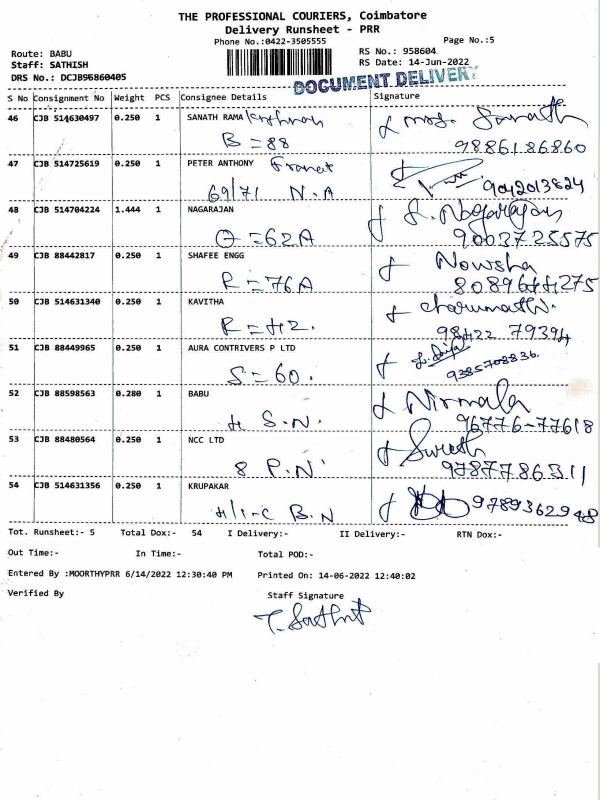 THE PROFESSIONAL COURIERS, Coimbatore
Delivery Runsheet - PRR
Phone No.:0422-3505555
Page No.:5
Route: BABU
RS No.: 958604
Staff: SATHISH
RS Date: 14-Jun-2022
DRS No.: DCJB96860405
DOCUMENT DELIVERY
S No Consignment No Weight PCS Consignee Details Signature
46 CJB 514630497 0.250 1 SANATH RAMA Krishnan
B = 88
9886186860
47 CJB 514725619 0.250 1 PETER ANTHONY
69/71 N.A
9042013824
48 CJB 514704224 1.444 1 NAGARAJAN S. Nagarajan
O = 62A
9003725575
49 CJB 88442817 0.250 1 SHAFEE ENGG Nowsha
R = 76A
8089644275
50 CJB 514631340 0.250 1 KAVITHA Charumathi.
R = 42.
98422 79394
51 CJB 88449965 0.250 1 AURA CONTRIVERS P LTD
S = 60.
9385708836.
52 CJB 88598563 0.280 1 BABU Nirmala
4 S.N.
96776-77618
53 CJB 88480564 0.250 1 NCC LTD Suresh
8 P.N
9787786311
54 CJB 514631356 0.250 1 KRUPAKAR 9789362948
4/1-C B.N
Tot. Runsheet:- 5 Total Dox:- 54 I Delivery:- II Delivery:- RTN Dox:-
Out Time:- In Time:- Total POD:-
Entered By :MOORTHYPRR 6/14/2022 12:30:40 PM Printed On: 14-06-2022 12:40:02
Verified By Staff Signature
T. Sathish